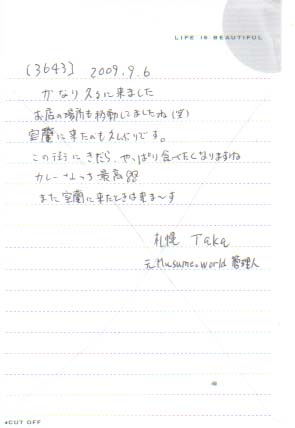 LIFE IS BEAUTIFUL
[3643] 2009.9.6
かなり久々に来ました
お店の場所も移動してましたね(笑)
室蘭に来たのも久しぶりです。
この街にきたら、やっぱり食べたくなりますね
カレーラーメン 最高
また室蘭に来たときは来ま〜す
札幌 Taka
元Musume.world 管理人
CUT OFF